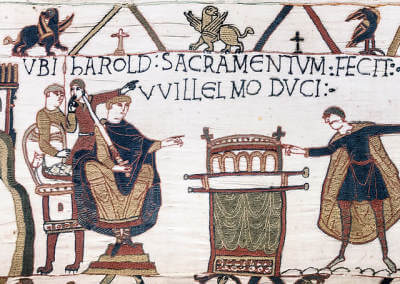 VBI hAROLD: SACRAMENTUM: FECIT:
VVILLELMO DUCI: